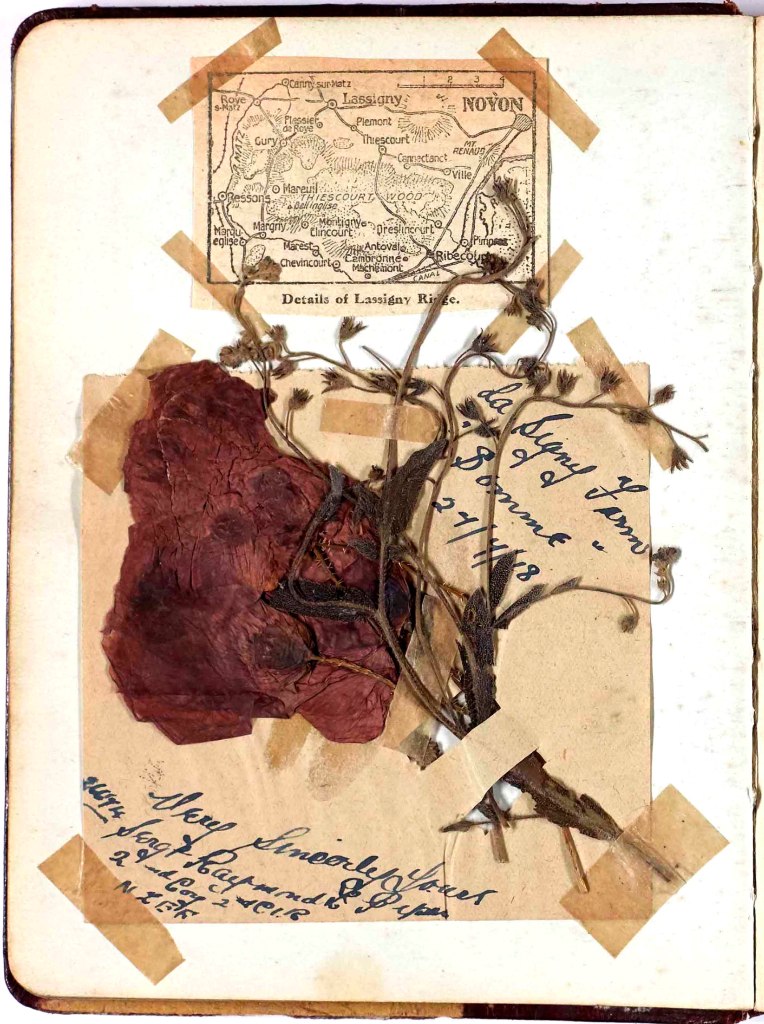 Canny-sur-Matz
1 2 3 4
Roye s-Matz
Lassigny
NOYON
Plessier de Roye
Plemont
Gury
Thiescourt
MATZ
Cannectanct
MT RENAUD
Ville
Mareuil
THIESCOURT WOOD
Ressons
Bellinglise
Margny
Montigny
Elincourt
Dreslincourt
Marqu-eglise
Marest
Antoval
Pimprez
Cambronne
Ribecourt
Chevincourt
Machemont
CANAL
Details of Lassigny Ridge.
"La Signy Farm"
"Somme"
Very Sincerely Yours
Sergt Raymond
2nd Coy 2nd
N.Z.E.F.